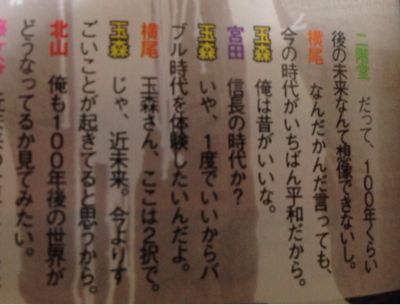 二階堂 だって、100年くらい
後の未来なんて想像できないし。
横尾 なんだかんだ言っても、
今の時代がいちばん平和だから。
玉森 俺は昔がいいな。
宮田 信長の時代か?
玉森 いや、1度でいいからバ
ブル時代を体験したいんだよ。
横尾 玉森さん、ここは2択で。
玉森 じゃ、近未来。今よりす
ごいことが起きてると思うから。
北山 俺も100年後の世界が
どうなってるか見てみたい。